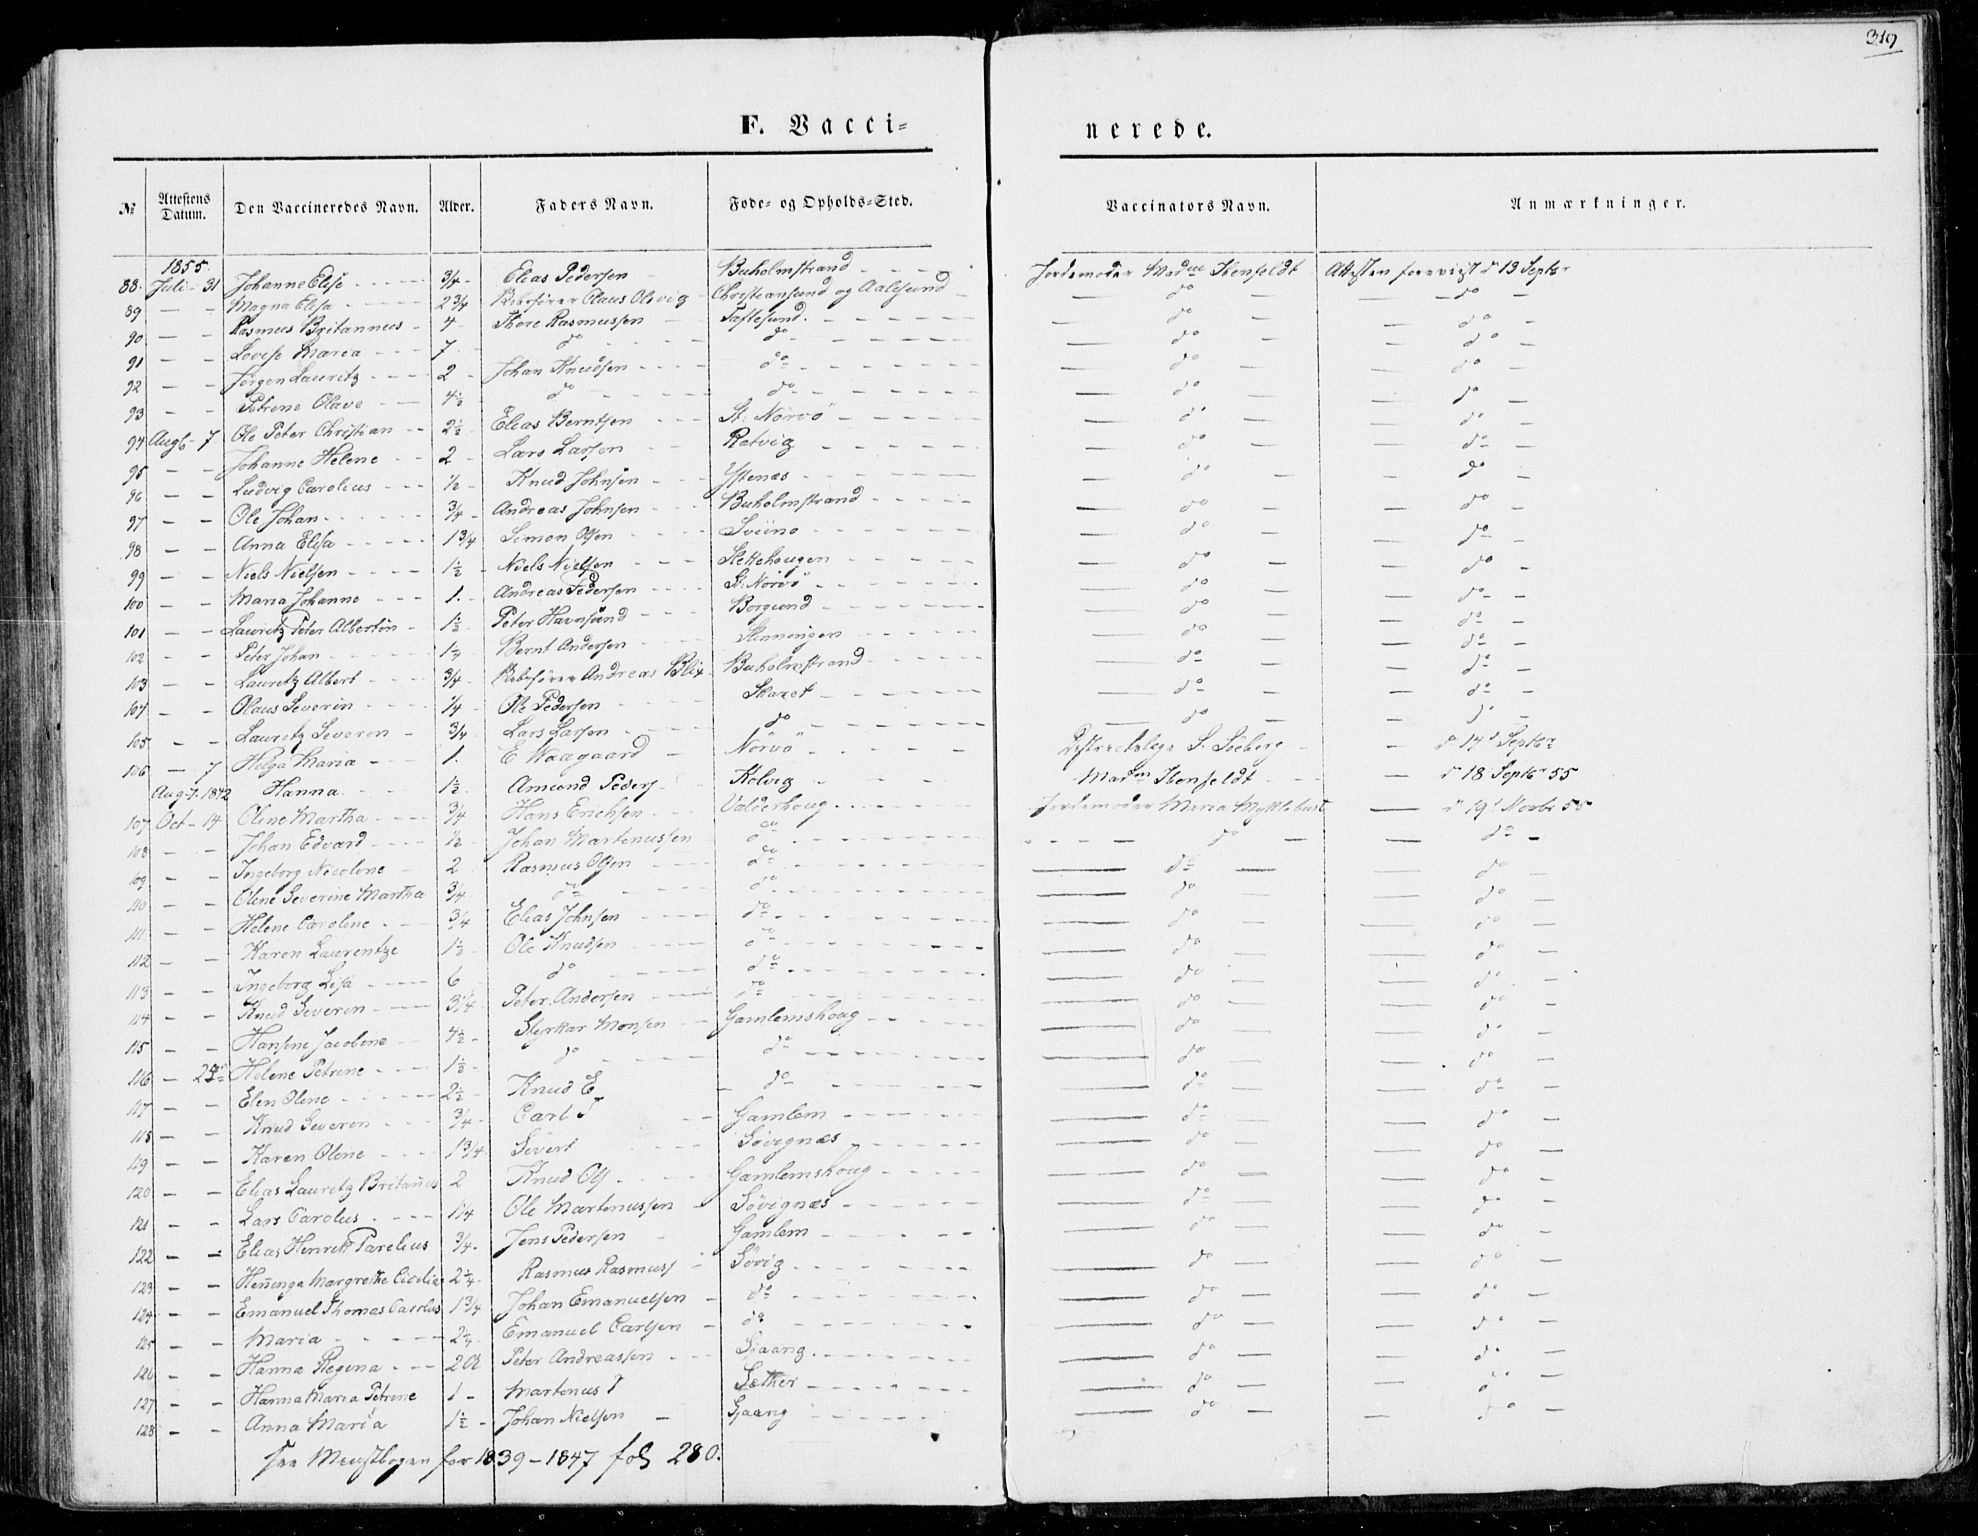 319
F. Vacci=
nerede.
№ | Attestens Datum. | Den Vaccineredes Navn. | Alder. | Faders Navn. | Føde- og Opholds-Sted. | Vaccinators Navn. | Anmærkninger.
1855.
88. Juli - 31 Johanne Elise 3/4 - Elias Pedersen Buholmstrand Jordemoder Madme Ibenfeldt Attesten foreviist d 13 Septbr
89 — - Magna Elisa 2 3/4 Olaus Olsvig Christiansund og Aalesund — do — — do —
90 — - Rasmus Britannus - 4 - Thore Rasmussen Taftesund. — do — — do —
91 — - Lovise Maria 7 do do — do — — do —
92 — - Jørgen Lauritz 2 Johan Knudsen do — do — — do —
93 — - Petrine Olave 4½ do do — do — — do —
94 Aug - 7 Ole Peter Christian 2½ - Elias Berntsen St. Nørvø — do — — do —
95 — - Johanne Helene 2 - Lars Larsen Ratvig — do — — do —
96 — - Ludvig Carolius ½ - Knud Johnsen Ystenæs — do — — do —
97 — - Ole Johan 3/4 - Andreas Johnsen Buholmstrand — do — — do —
98 — - Anna Elisa 1 3/4 Simon Olsen — do — — do —
99 — - Niels Nielsen 1½ - Niels Nielsen Slettehougen — do — — do —
100 — - Maria Johanne 1. - Andreas Pedersen St. Nørvø — do — — do —
101 — - Lauritz Peter Albertin - 1½ - Peter Havnsund Borgund — do — — do —
102 — - Peter Johan 1¼ - Bernt Andersen — do — — do —
103 — - Lauritz Albert 3/4 - Andreas Blix Buholmstrand — do — — do —
104 — - Olaus Severin 1/4 - Ole Pedersen Skaret — do — — do —
105 — - Lauritz Severin 3/4 - Lars Larsen do — do — — do —
106 — 7 Helga Maria 1. E. Waagaard Nörvö S. Söeberg — do 14 Septbr
Aug 7. 1842 Hanna 1½ - Amund Peders Kolvig Madm Ibenfeldt — do 18 Septbr 55
107 Oct - 14 Oline Martha 3/4 Hans Erichsen Valderhoug Jordemoder Maria Myklebust — do 19 Novbr 55
108 — - Johan Edvard ½ Johan Martinussen do — do — — do —
109 — - Ingeborg Nicoline 2 Rasmus Olsen do — do — — do —
110 — - Oline Severine Martha 3/4 do do — do — — do —
111 — - Helene Caroline 3/4 Elias Johnsen do — do — — do —
112 — - Karen Laurentze 1½ - Ole Knudsen do — do — — do —
113 — - Ingeborg Lisa 6 do do — do — — do —
114 — - Knud Severin 3 1/4 Peter Andersen do — do — — do —
115 — - Hansine Jacobine 4½ - Styrkar Monsen Gamlemshoug — do — — do —
116 — Helene Petrine 1½ - do do — do — — do —
117 — - Elen Oline 2½ - Knud E do — do — — do —
118 — - Knud Severin 3/4 - Carl T Gamlem — do — — do —
119 — - Karen Oline 1 3/4 Sivert Søvignæs — do — — do —
120 — - Elias Lauritz Britanus 2 Knud Ols Gamlemshoug — do — — do —
121 — - Lars Carolus 1 1/4 Ole Martinussen Søvignæs — do — — do —
122 — - Elias Henrik Parelius 3/4 - Jens Pedersen Gamlem — do — — do —
123 — - Henninga Margrethe Cicilia 2¼ - Rasmus Rasmuss Søvig — do — — do —
124 — - Emanuel Thomas Carolus 1 3/4 Johan Emanuelsen do — do — — do —
125 — - Maria 2¼ - Emanuel Carlsen do — do — — do —
126 — - Hanna Regina 2 Peter Andreassen Gjaang — do — — do —
127 — - Hanna Maria Petrine 1 - Martinus T Sæther — do — — do —
128 — - Anna Maria 1½ - Johan Nielsen Gjaang — do — — do —
see for 1839-1847 fol 280.